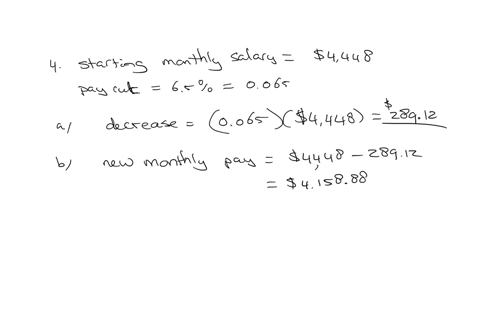 4. starting monthly salary = $4,448
pay cut = 6.5% = 0.065
a) decrease = (0.065)($4,448) = $289.12
b) new monthly pay = $4,448 - 289.12
= $4,158.88